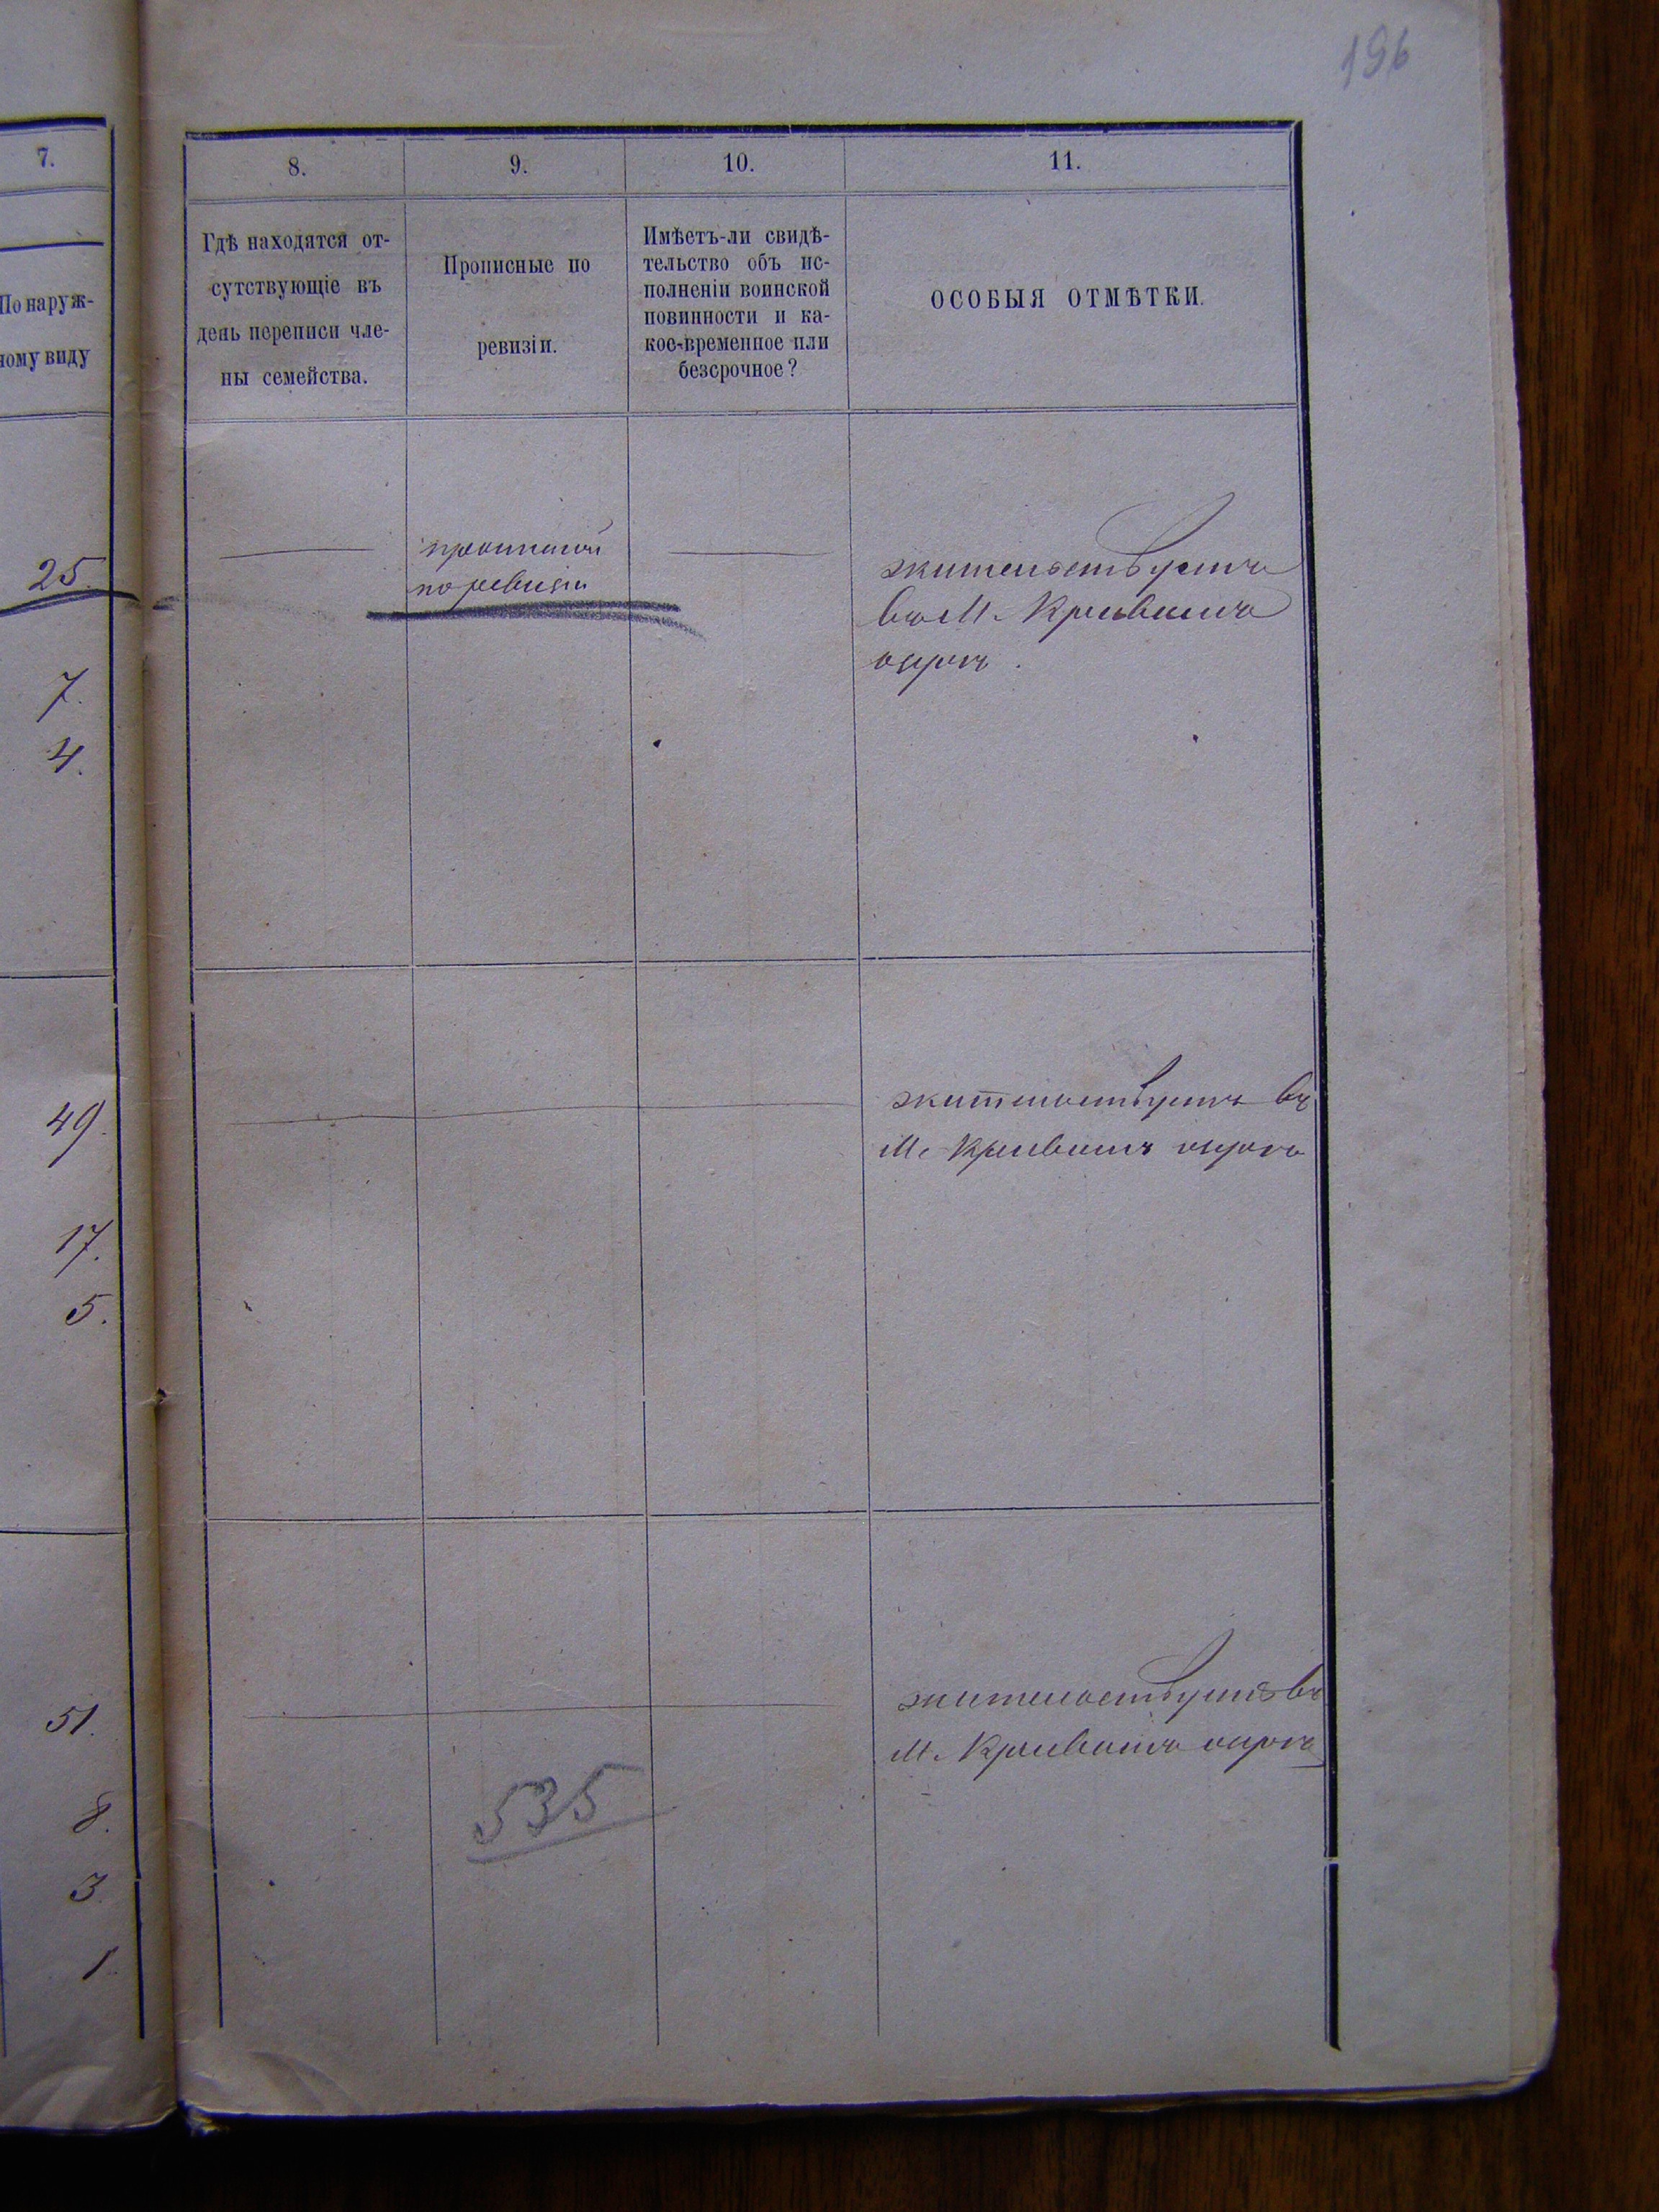 196
7.
8.
9.
10.
11.
По наруж-
ному виду
Гдѣ находятся от-
сутствующіе въ
день переписи чле-
ны семейства.
Прописные по
ревизіи.
Имѣетъ-ли свидѣ-
тельство объ ис-
полненіи воинской
повинности и ка-
кое-временное или
безсрочное?
ОСОБЫЯ ОТМѢТКИ.
25.
7.
4.
прописной
по ревизіи
жительствуетъ
въ М. Кривичъ
49.
17.
5.
жительствуетъ въ
М. Кривичъ
51.
8.
3.
1.
535
жительствуетъ въ
М. Кривичъ